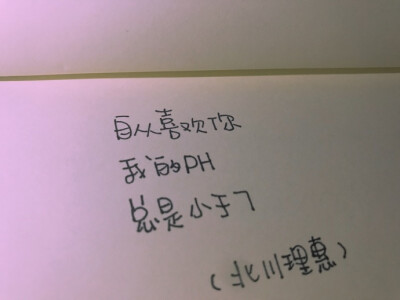 自从喜欢你
我的PH
总是小于7
(北川理惠)